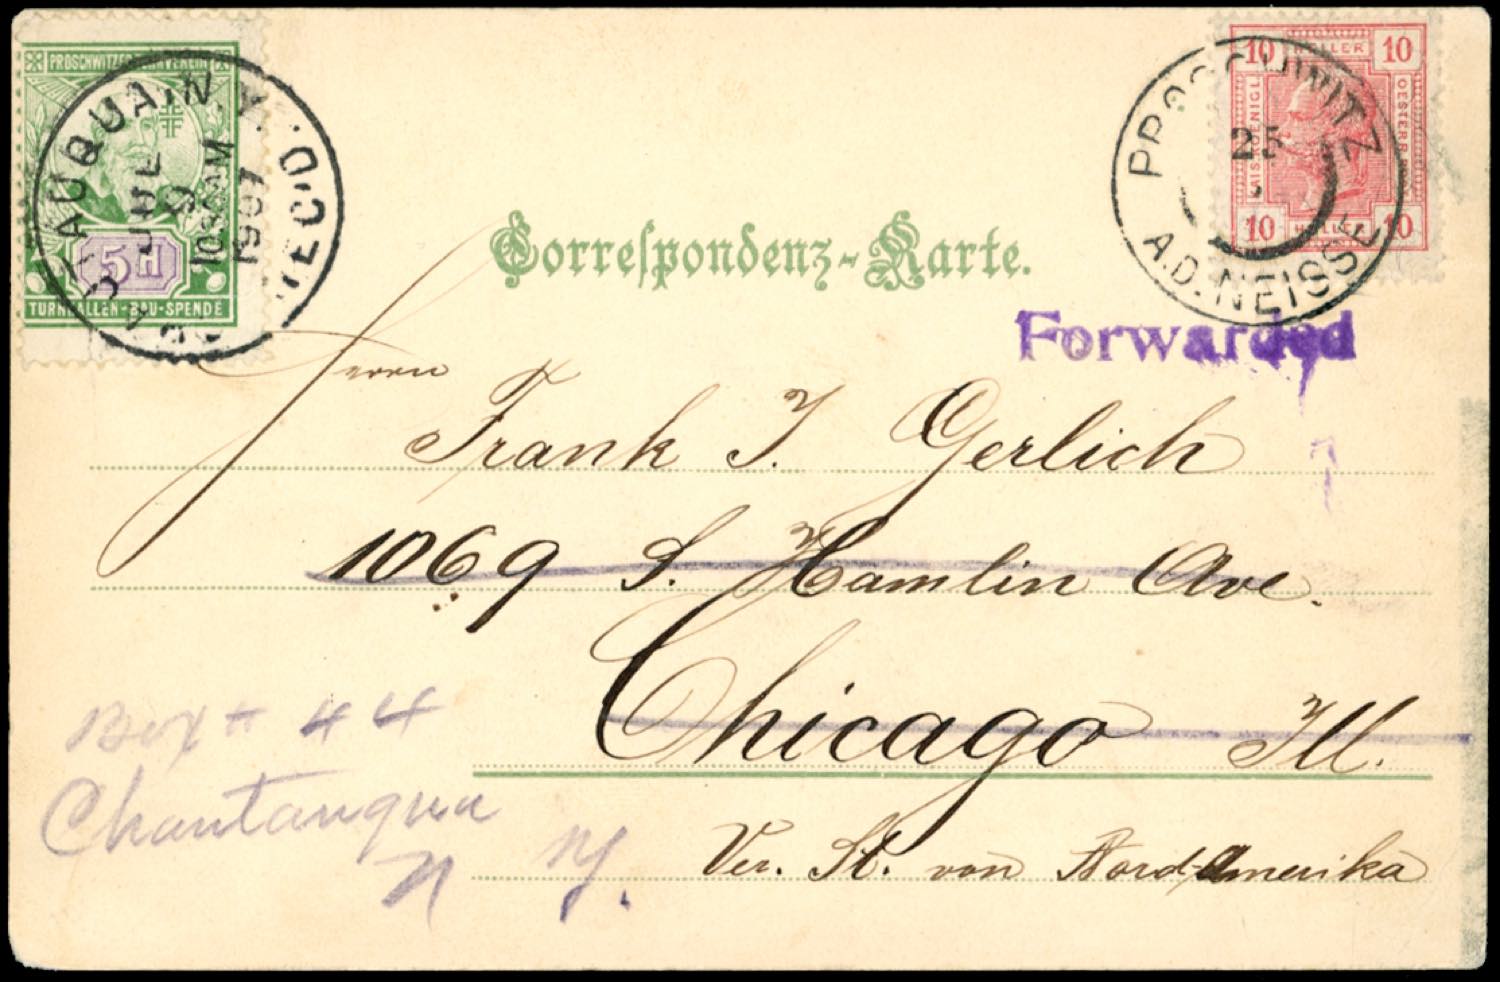 PROSCHWITZER TURNVEREIN
5H
TURNHALLEN-BAU-SPENDE
CHAUTAUQUA, N.Y. REC'D.
JUL 9
1030AM
1907
10 HELLER 10
OESTERR
10 HELLER 10
PROSCHWITZ
25
A.D. NEISSE
Correspondenz-Karte.
Forwarded
Herrn
Frank J. Gerlich
1069 S. Hamlin Ave.
Chicago Ill.
Ver. St. von Nord-Amerika
Box # 44
Chautauqua
N Y.